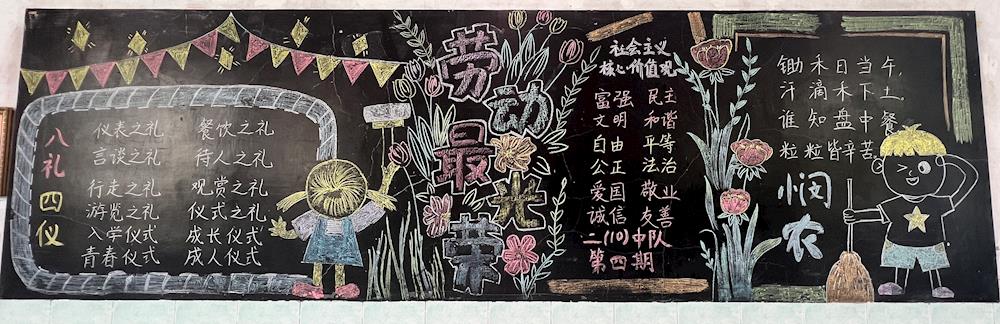 八礼四仪
仪表之礼 餐饮之礼
言谈之礼 待人之礼
行走之礼 观赏之礼
游览之礼 仪式之礼
入学仪式 成长仪式
青春仪式 成人仪式
劳动最光荣
社会主义
核心价值观
富强 民主
文明 和谐
自由 平等
公正 法治
爱国 敬业
诚信 友善
二(10)中队
第四期
锄禾日当午,
汗滴木下土。
谁知盘中餐
粒粒皆辛苦
悯农